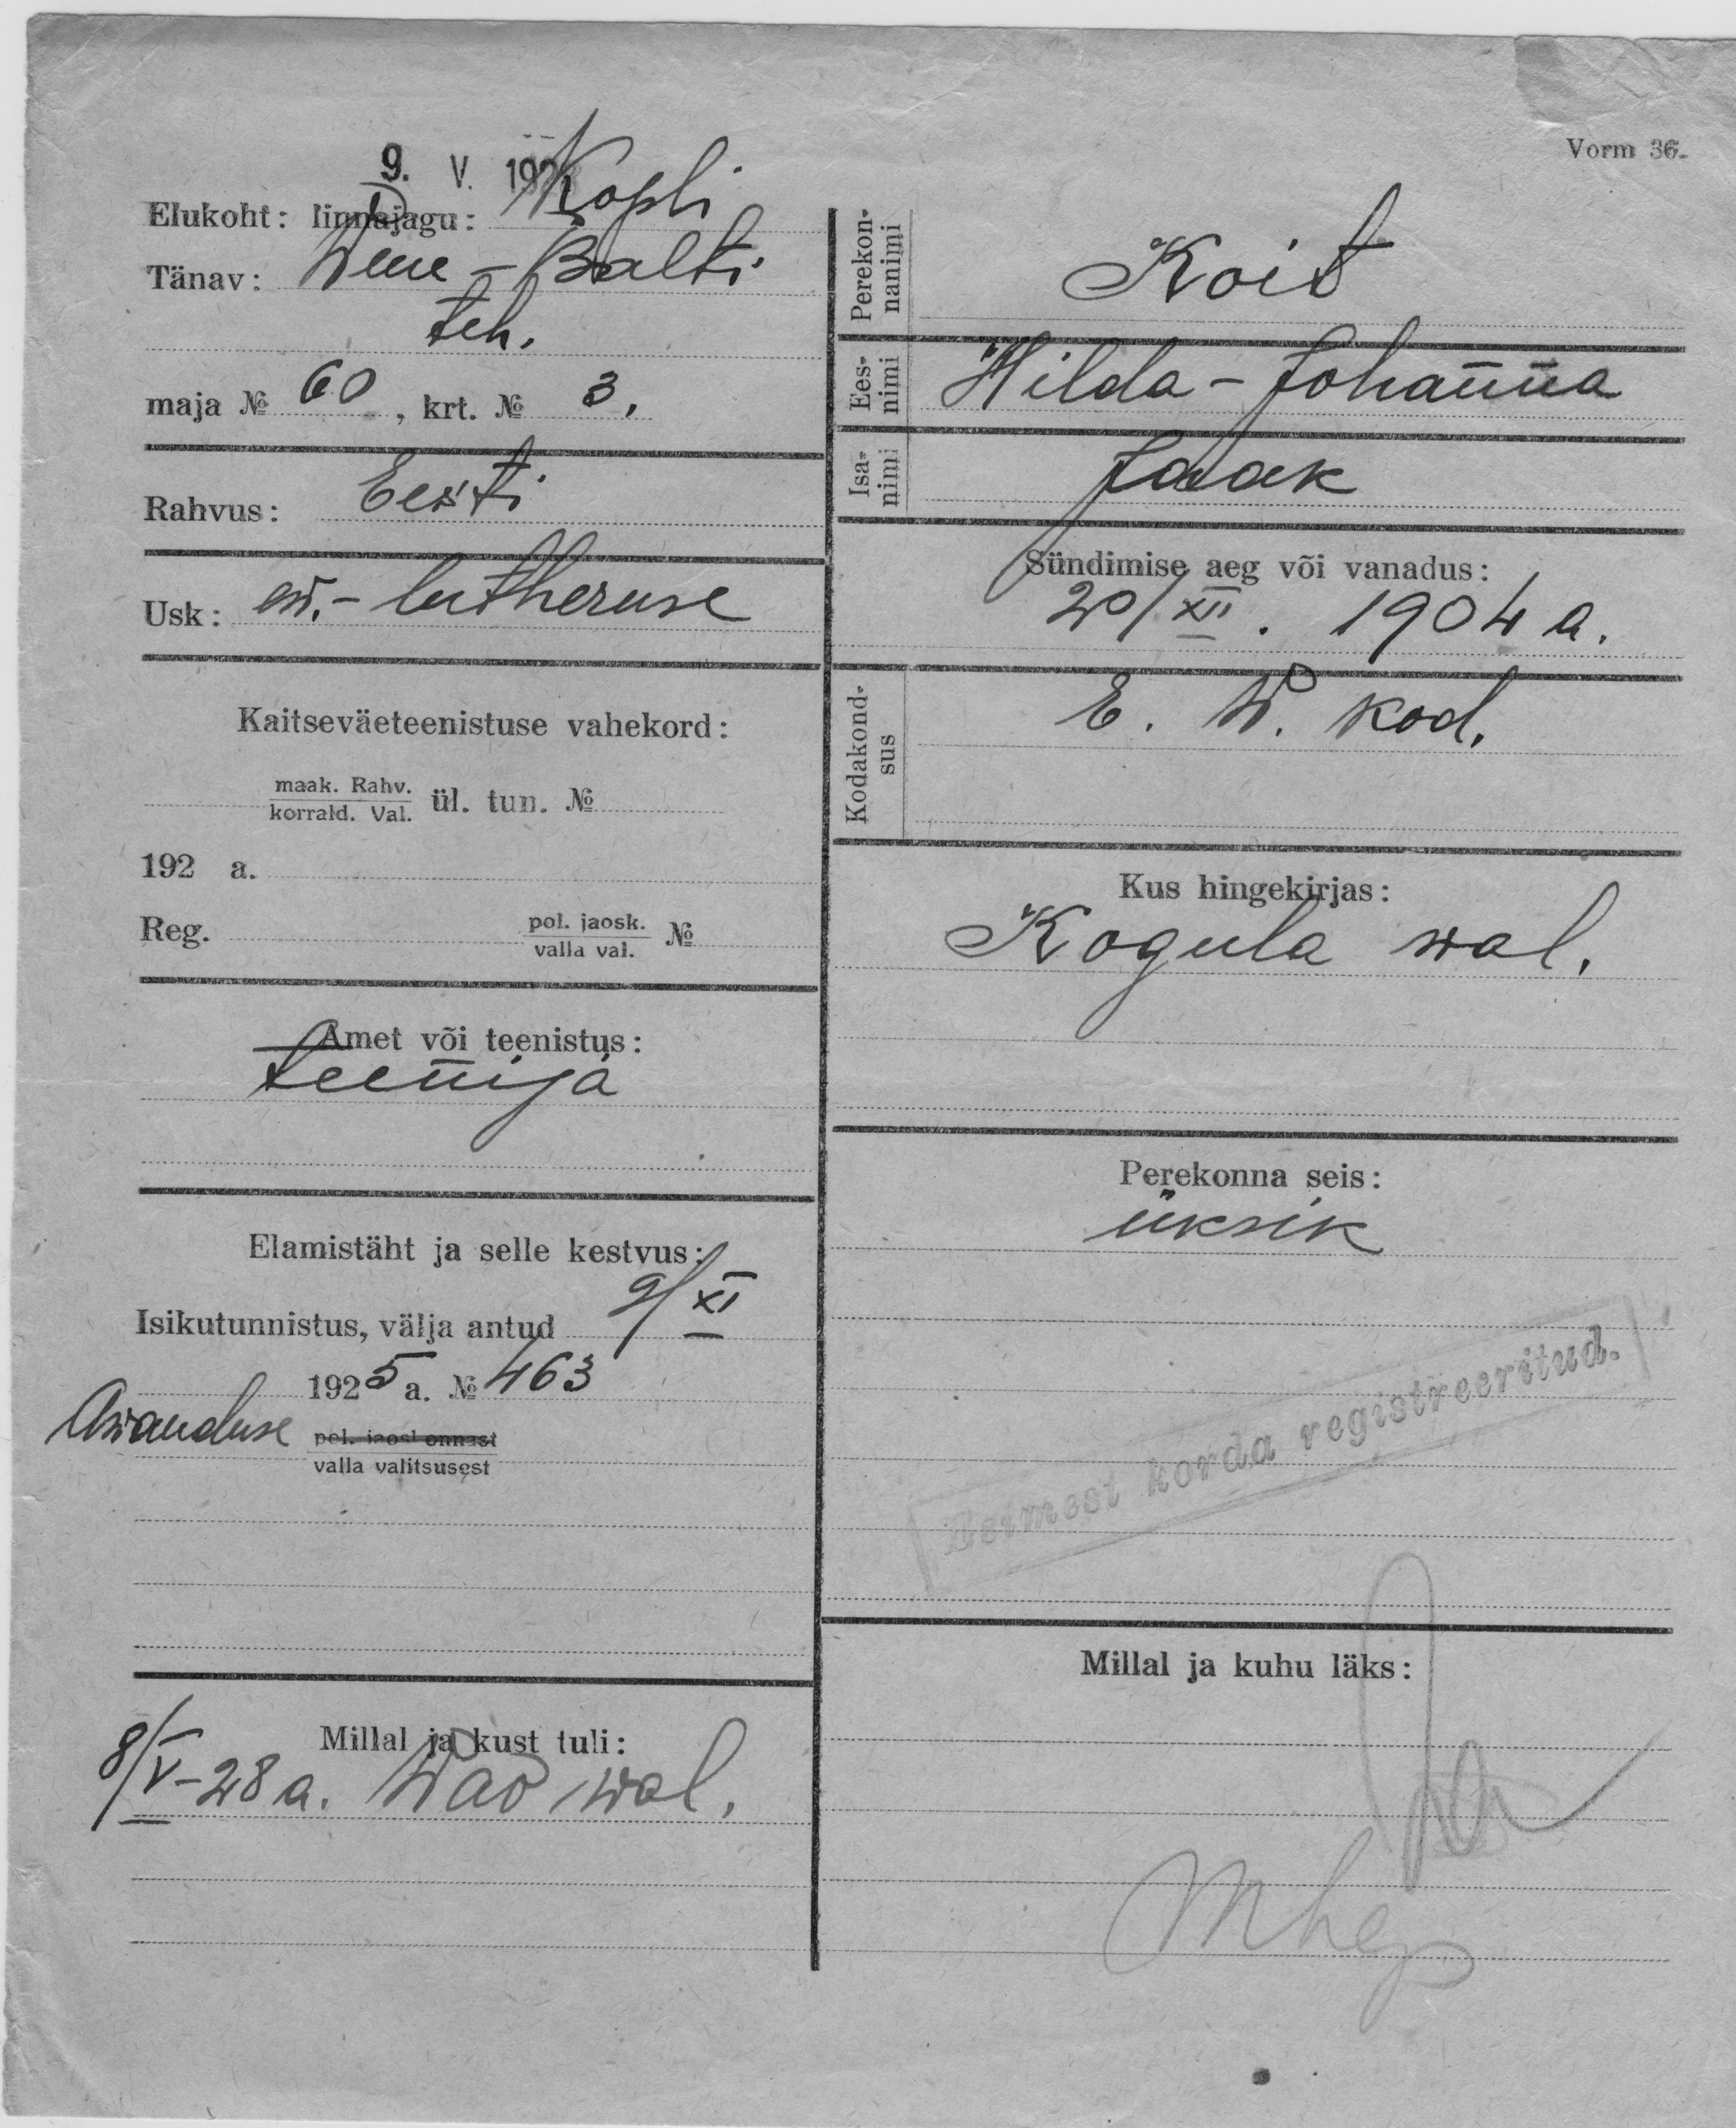 Vorm 36.
9. V. 1928
Elukoht: linnajagu: Kopli
Tänav: Wene-Balti
teh.
maja № 60, krt. № 3.
Rahvus: Eesti
Usk: ev.-lutheruse
Kaitseväeteenistuse vahekord:
maak. Rahv.
korrald. Val. ül. tun. №
192 a.
Reg. pol. jaosk.
valla val. №
Amet või teenistus:
teenija
Elamistäht ja selle kestvus:
Isikutunnistus, välja antud 9/XI
1925 a. № 463
Awanduse pol. jaoskonnast
valla valitsusest
Millal ja kust tuli:
8/V-28 a. Wao wal.
Perekon-
nanimi
Koit
Ees-
nimi
Hilda-Johanna
Isa-
nimi
Jaak
Sündimise aeg või vanadus:
20/XII. 1904 a.
Kodakond-
sus
E. W. kod.
Kus hingekirjas:
Kogula wal.
Perekonna seis:
üksik
Esimest korda registreeritud.
Millal ja kuhu läks: